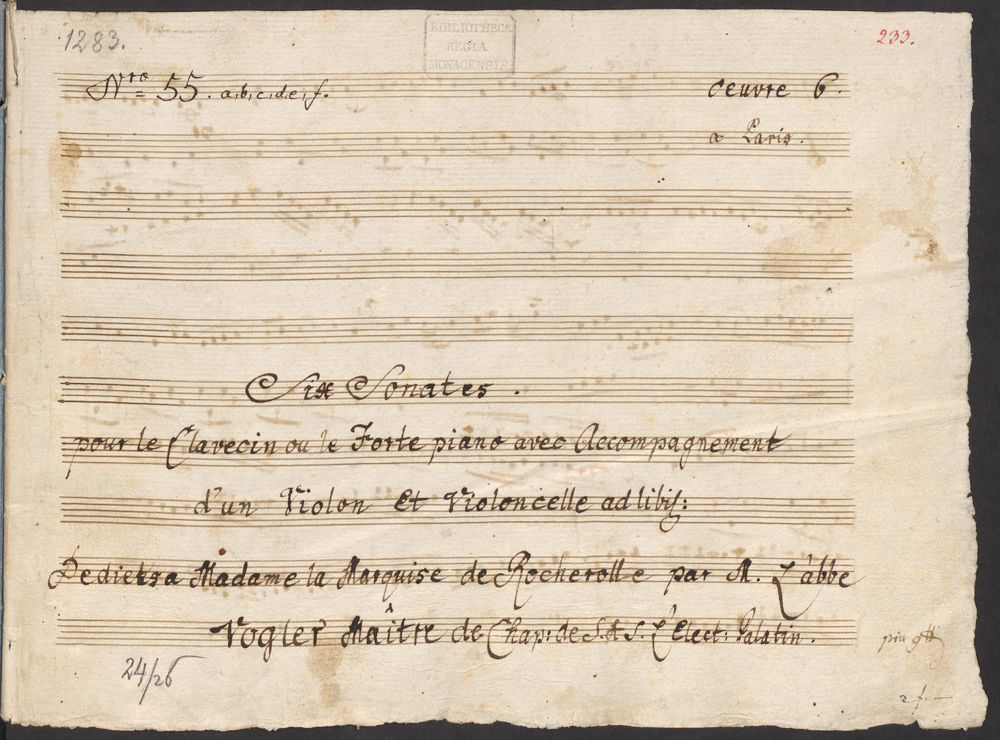 1283.
BIBLIOTHECA
REGIA
MONACENSIS.
233.
Nro 55. a,b,c,d,e,f.
oeuvre 6.
a Paris.
Six Sonates.
pour le Clavecin ou le Forte piano avec Accompagnement
d'un Violon Et Violoncelle ad libit:
Dediets a Madame la Marquise de Rocherolle par M. L'àbbe
Vogler Maître de Chap: de S.A.S. L'Elect: Palatin.
24/26